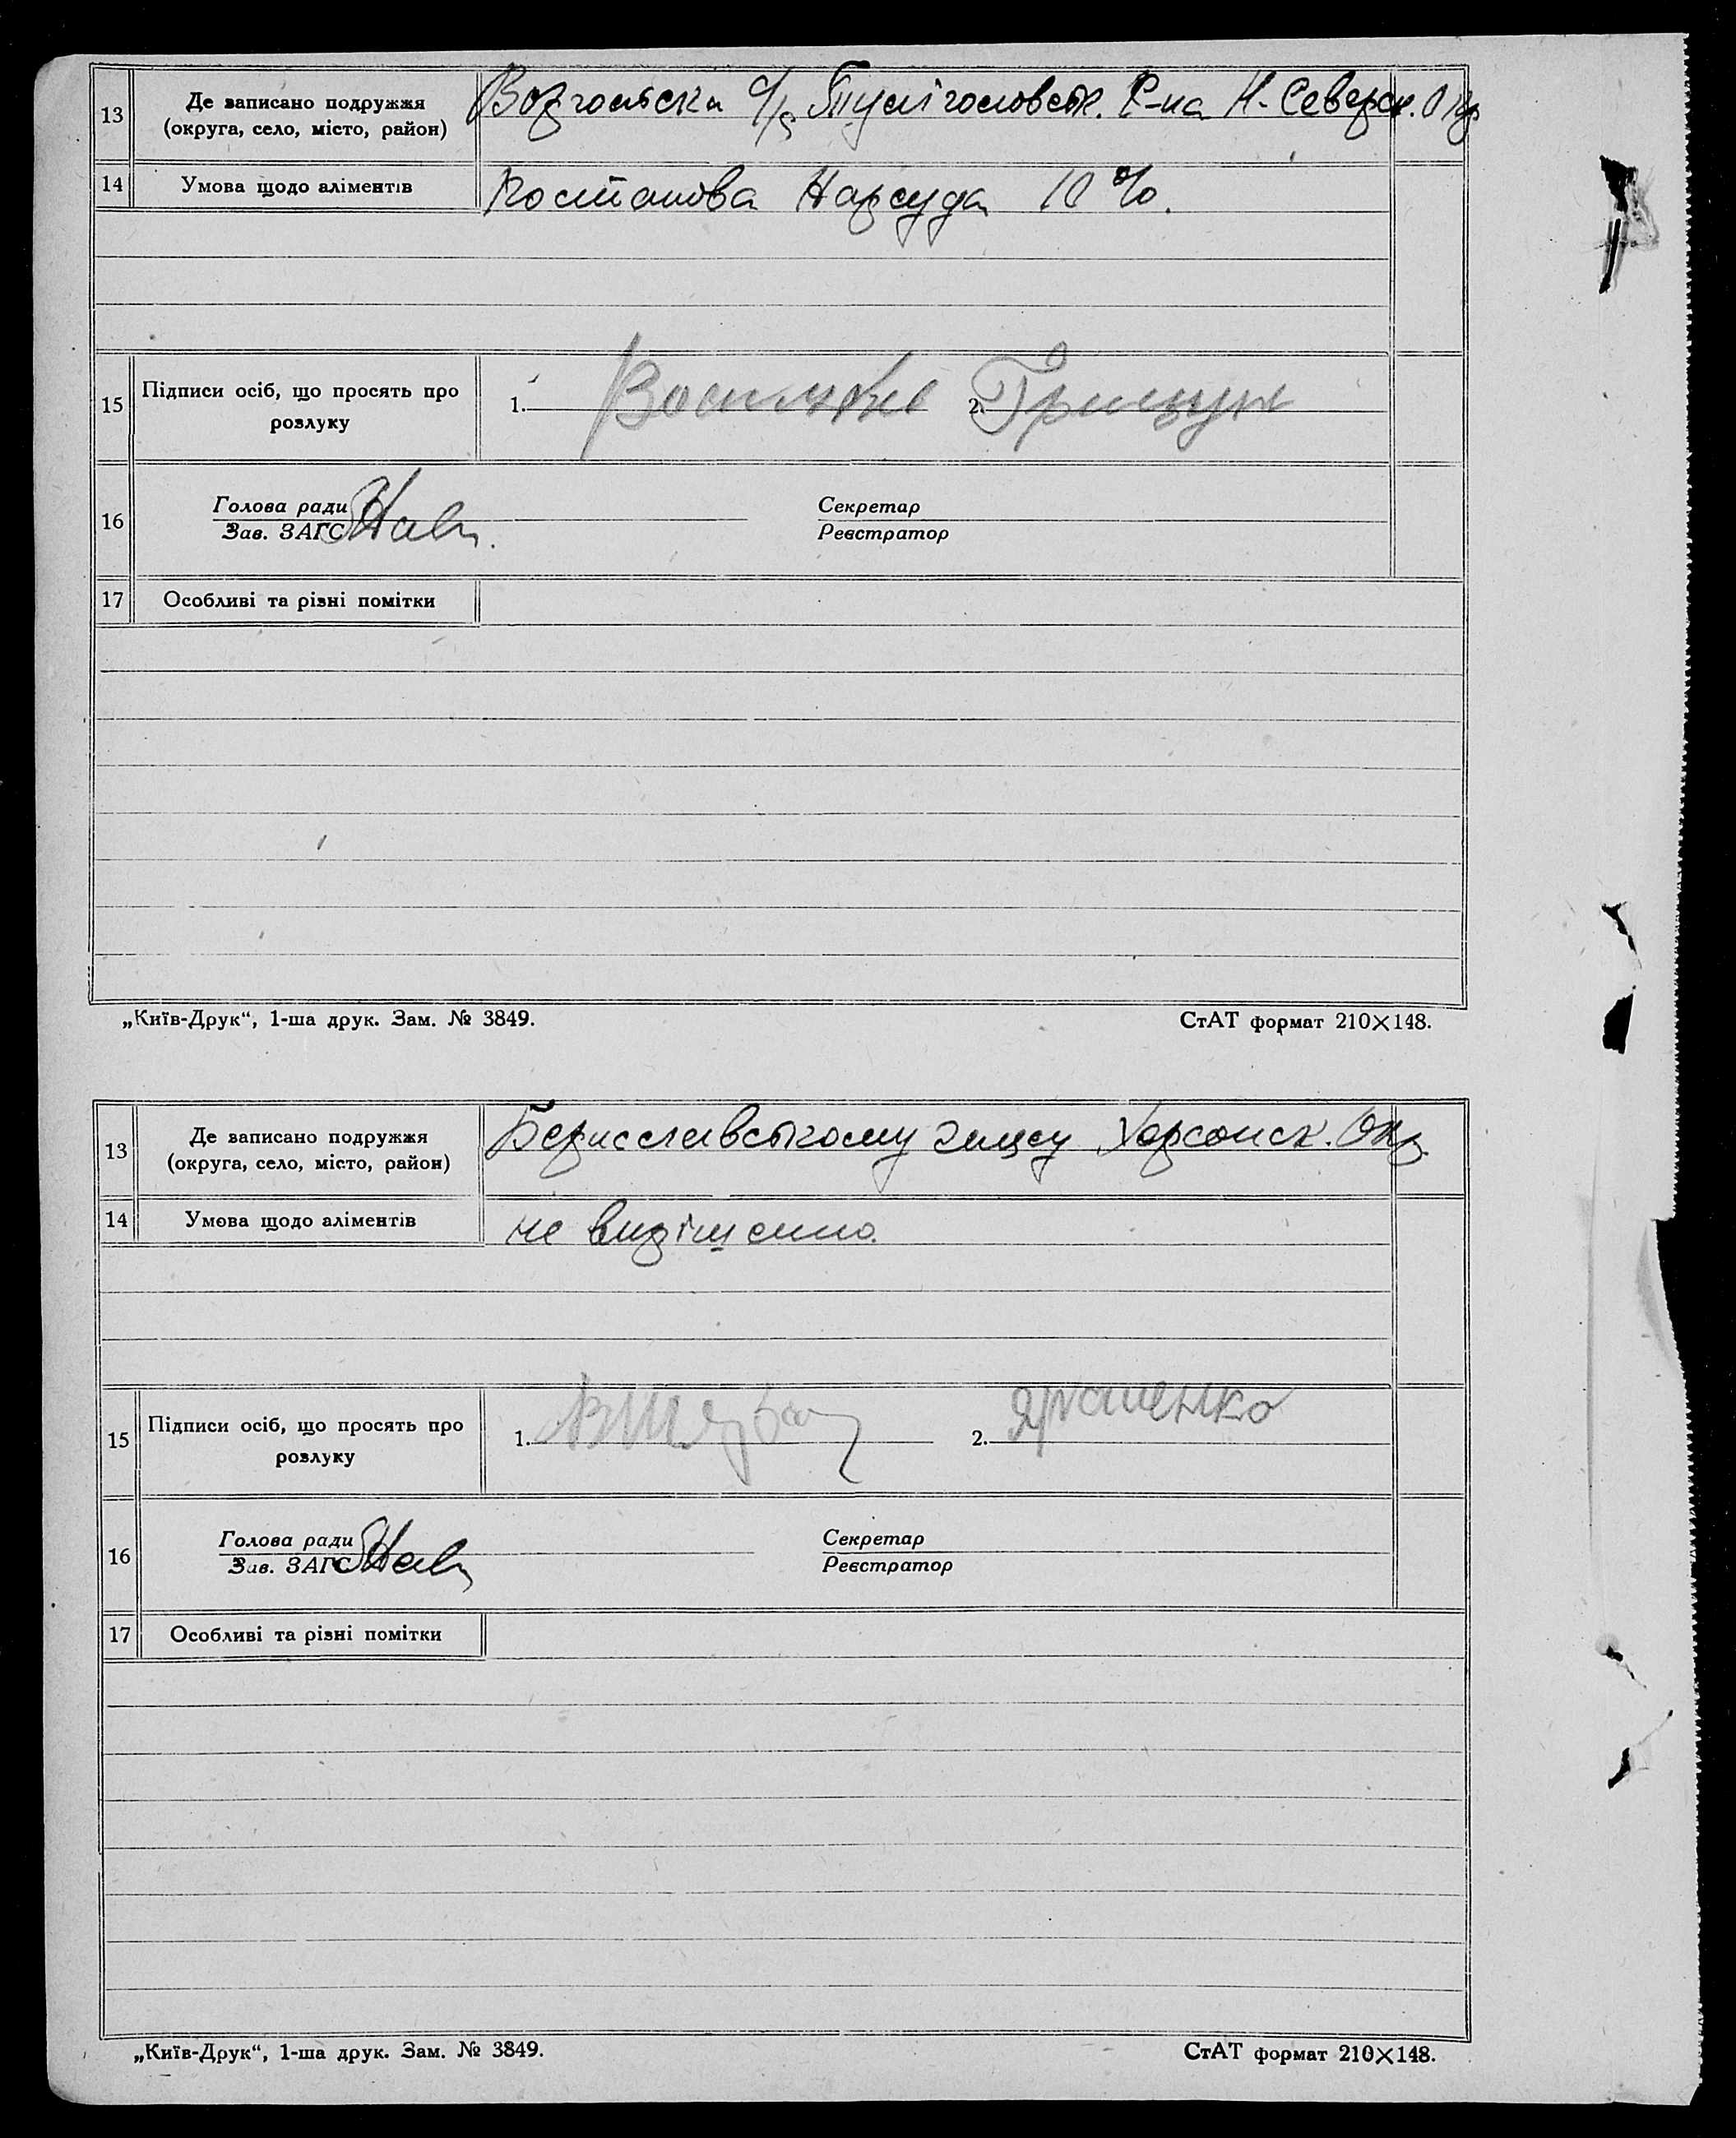 13 Де записано подружжя (округа, село, місто, район) с/р Р-на Н-Северск. Окр
14 Умова щодо аліментів Постанова Нарсуда 10%.
15 Підписи осіб, що просять про розлуку 1. 2. Грищук
16 Голова ради Зав. ЗАГС Секретар Реєстратор
17 Особливі та різні помітки
„Київ-Друк“, 1-ша друк. Зам. № 3849. СтАТ формат 210×148.
13 Де записано подружжя (округа, село, місто, район) Бериславському Загсу Херсонск. Окр.
14 Умова щодо аліментів не вирішено.
15 Підписи осіб, що просять про розлуку 1. 2.
16 Голова ради Зав. ЗАГС Секретар Реєстратор
17 Особливі та різні помітки
„Київ-Друк“, 1-ша друк. Зам. № 3849. СтАТ формат 210×148.